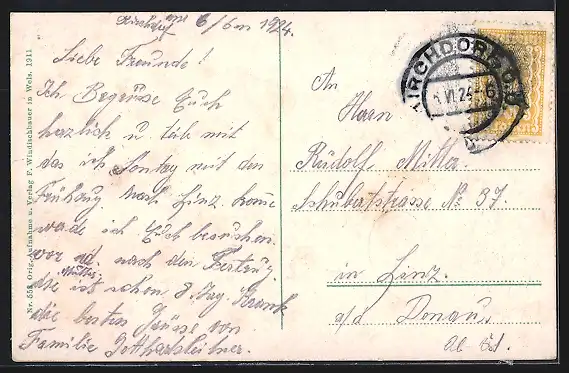 Kirchdorf am 6/6 1924.
Liebe Freunde!
Ich Begrüsse Euch
herzlich u. teile mit
das ich Sontag mit den
Frühzug nach Linz komme
werde ich Euch besuchen.
vor nach den Festzug
Mutter
die ist schon 8 Tag Krank
die besten Grüsse von
Familie
An
Herrn
Rudolf Mitter
Schubertstrasse No 37.
in Linz.
a/d Donau
Ob. Öst.
KIRCHDORF
VI 24
Nr. 553 Orig.-Aufnahme u. Verlag F. Windischbauer in Wels. 1911